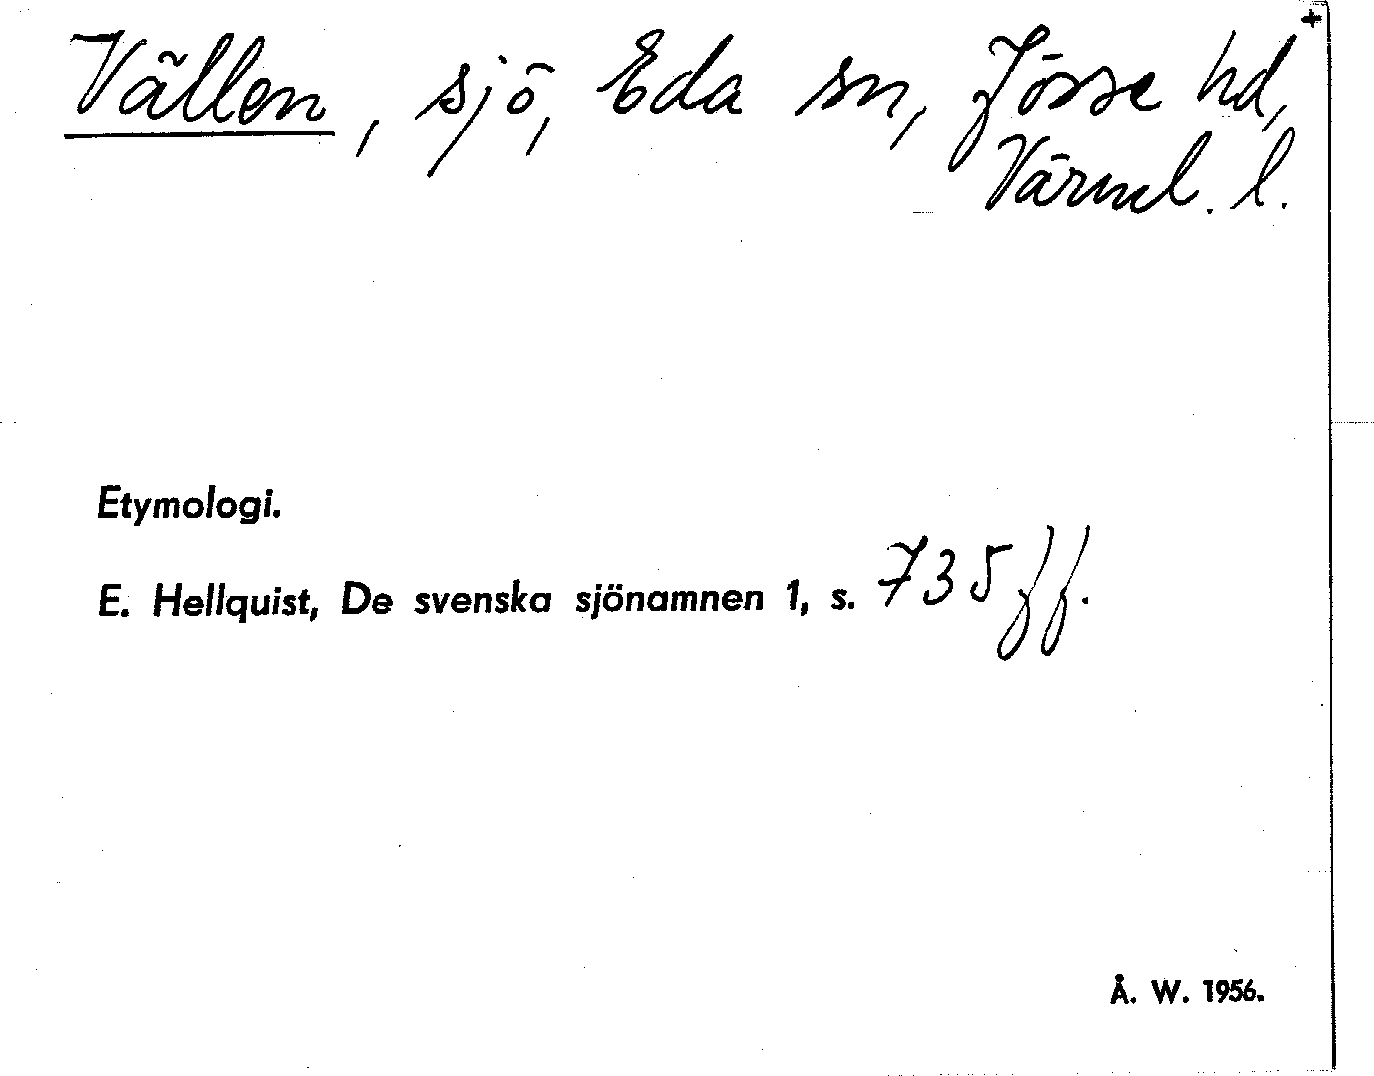 Vällen, sjö, Eda sn, Jösse hd,
Värml. l.
Etymologi.
E. Hellquist, De svenska sjönamnen 1, s. 735 ff.
Å. W. 1956.